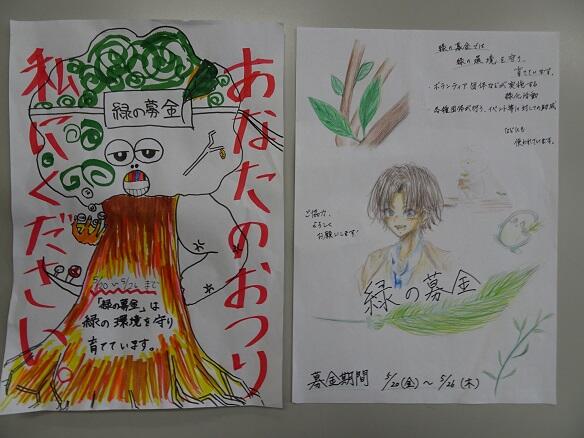 あなたのおつり
私にください。
緑の募金
5/20〜5/26まで
「緑の募金」は
緑の環境を守り
育てています。
緑の募金では
緑の環境を守り、
育てています。
・ボランティア団体などが実施する
緑化活動
各種団体が行う、イベント等に対しての助成
などにも
使われています。
ご協力、
よろしく
お願いします!
緑の募金
募金期間 5/20(金)〜5/26(木)